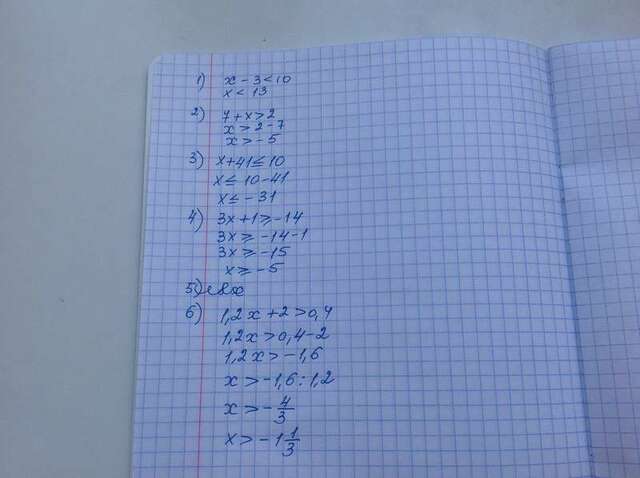 1) x - 3 < 10
x < 13
2) 7 + x > 2
x > 2 - 7
x > - 5
3) x + 41 ≤ 10
x ≤ 10 - 41
x ≤ - 31
4) 3x + 1 ≥ - 14
3x ≥ - 14 - 1
3x ≥ - 15
x ≥ - 5
5)
6) 1,2x + 2 > 0,4
1,2x > 0,4 - 2
1,2x > - 1,6
x > - 1,6 : 1,2
x > - 4/3
x > - 1 1/3